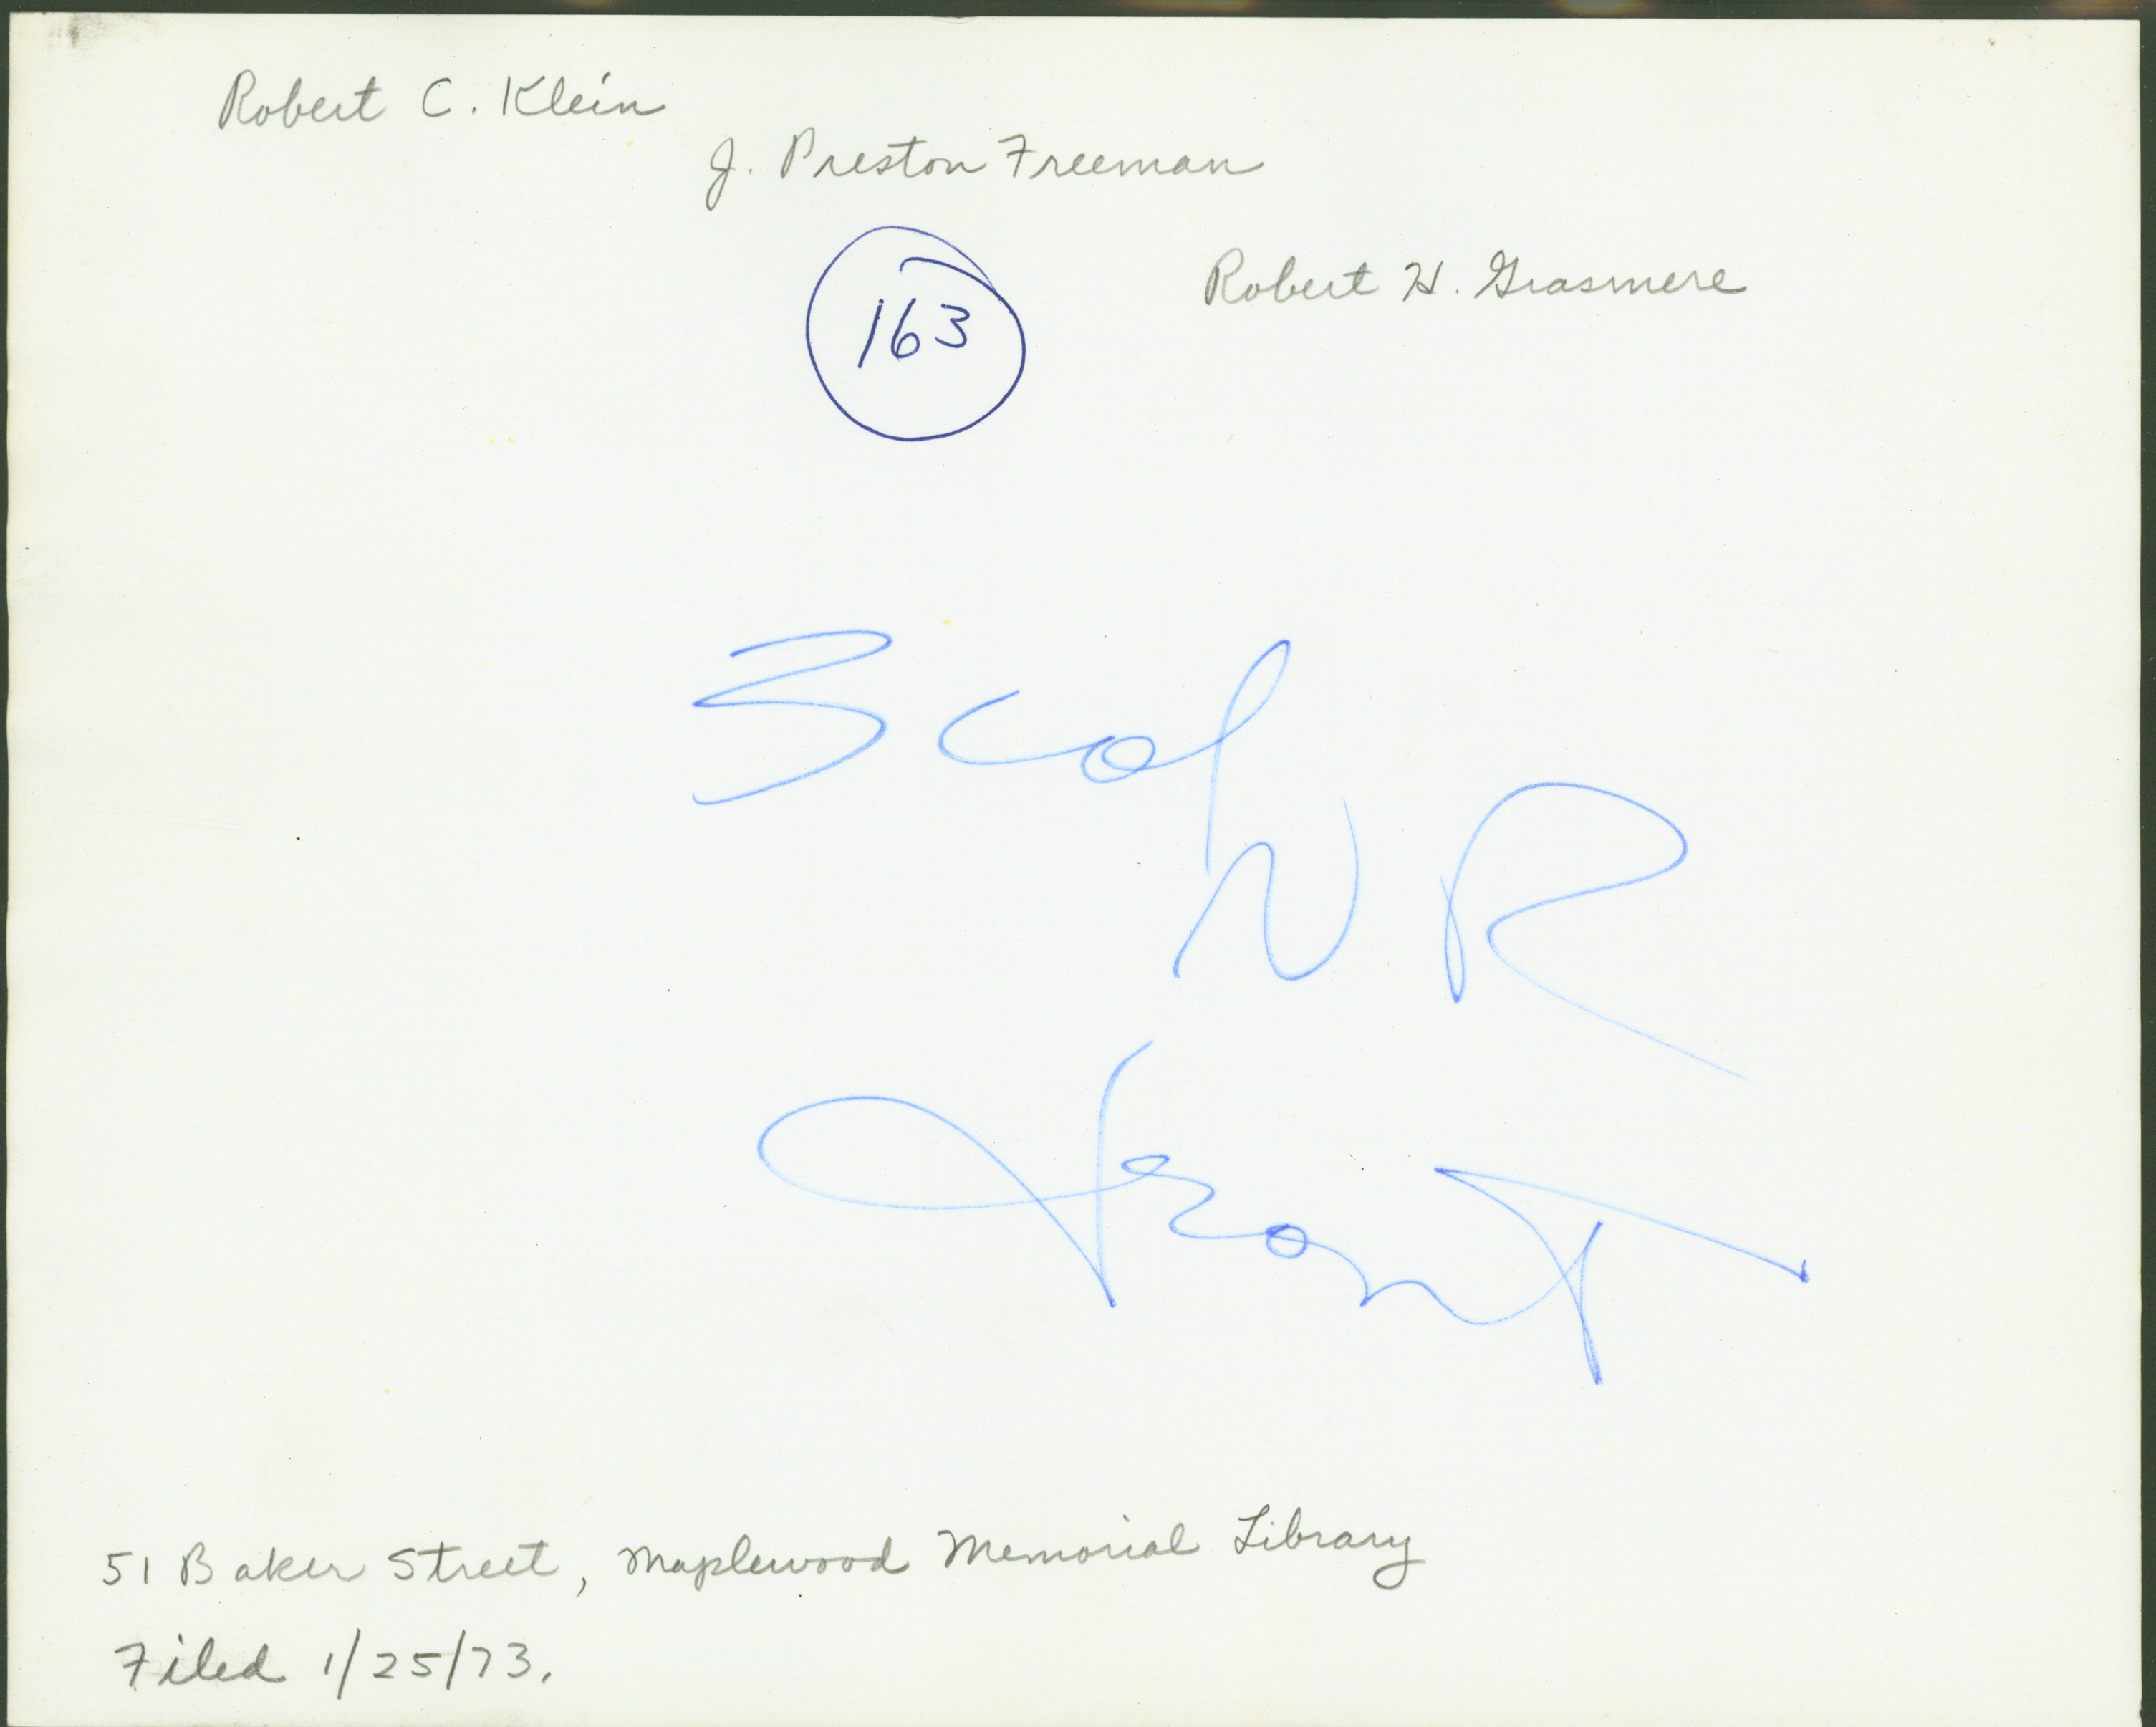 Robert C. Klein
J. Preston Freeman
Robert H. Grasmere
163
3 col
N R
front
51 Baker Street, Maplewood Memorial Library
Filed 1/25/73.